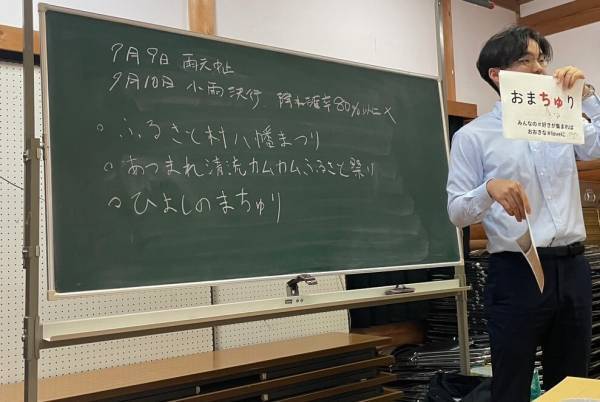 9月9日 雨天中止
9月10日 小雨決行 降水確率80%以上×
○ ふるさと村八幡まつり
○ あつまれ清流カムカムふるさと祭り
○ ひよしのまちゅり
おまちゅり
みんなの#好きが集まれば
おおきな#loveに